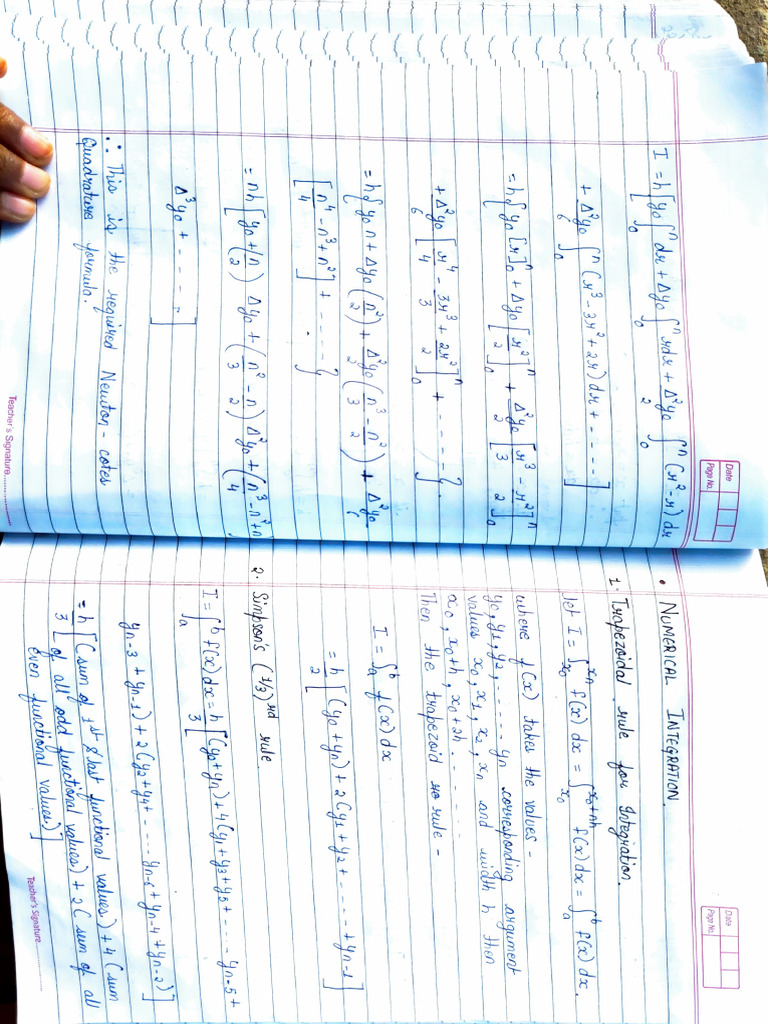 Date
Page No.
I = h[y₀∫₀ⁿ dr + Δy₀∫₀ⁿ rdr + Δ²y₀/2 ∫₀ⁿ (r²-r) dr
+ Δ²y₀/6 ∫₀ⁿ (r³-3r²+2r) dr + - - - - -]
= h{y₀[r]₀ⁿ + Δy₀[r²/2]₀ⁿ + Δ²y₀/2 [r³/3 - r²/2]₀ⁿ
+ Δ²y₀/6 [r⁴/4 - 3r³/3 + 2r²/2]₀ⁿ + - - - - -}.
= h{y₀n + Δy₀(n²/2) + Δ²y₀/2 (n³/3 - n²/2) + Δ²y₀/6
[n⁴/4 - n³ + n²] + - - - - -}
= nh[y₀ + (n/2) Δy₀ + (n²/3 - n/2) Δ²y₀ + (n³/4 - n² + n)
Δ³y₀ + - - - - -]
∴ This is the required Newton - cotes
Quadrature formula.
Teacher's Signature
Date
Page No.
• NUMERICAL INTEGRATION.
1. Trapezoidal rule for Integration.
let I = ∫ₓ₀ˣⁿ f(x) dx = ∫ₓ₀ˣ⁰⁺ⁿʰ f(x) dx = ∫ₐᵇ f(x) dx.
where f(x) takes the values -
y₀, y₁, y₂, - - - - - yₙ corresponding argument
values x₀, x₁, x₂, xₙ and width h then
x₀, x₀+h, x₀+2h - - - - -
Then the trapezoid rule -
I = ∫ₐᵇ f(x) dx
= h/2 [(y₀+yₙ) + 2(y₁+y₂+ - - - - - + yₙ₋₁]
2. Simpson's (1/3)rd rule.
I = ∫ₐᵇ f(x) dx = h/3 [(y₀+yₙ) + 4(y₁+y₃+y₅+ - - - - yₙ₋₅+
yₙ₋₃ + yₙ₋₁) + 2(y₂+y₄+ - - - - yₙ₋₆ + yₙ₋₄ + yₙ₋₂)]
= h/3 [(sum of 1st & last functional values) + 4 (sum
of all odd functional values) + 2 (sum of all
even functional values)]
Teacher's Signature